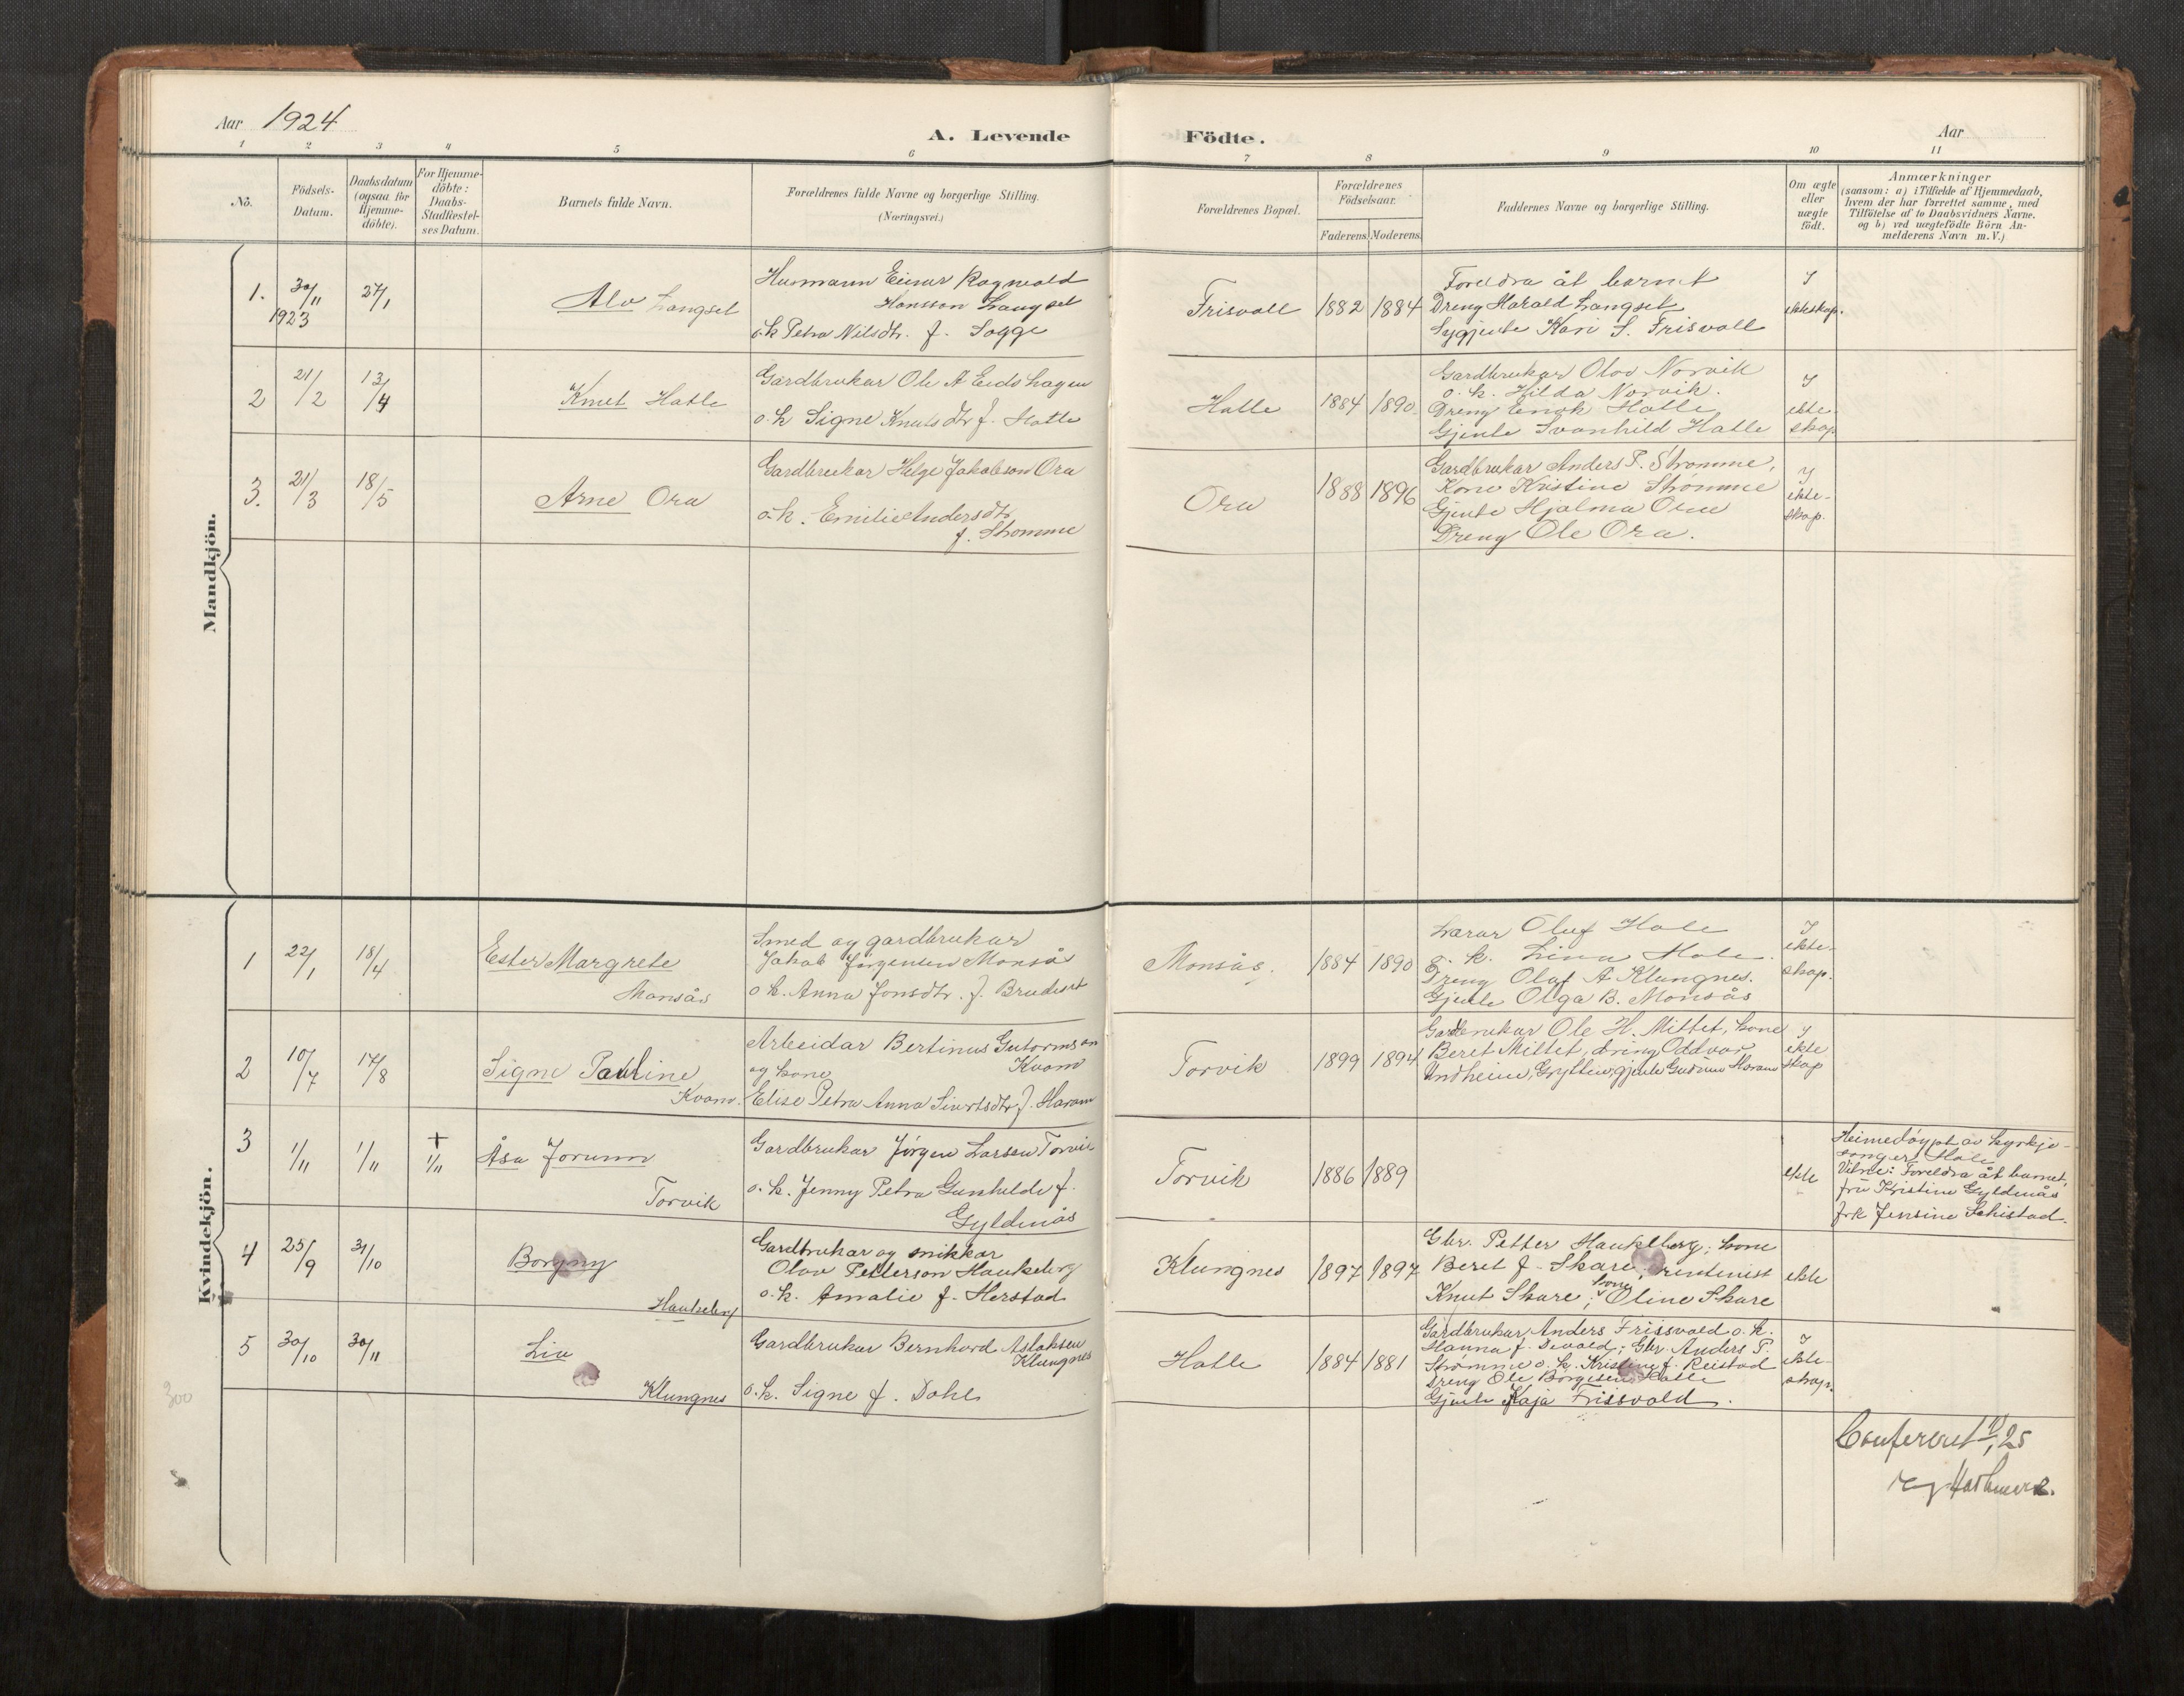 Aar 1924
A. Levende Födte.
Aar
1 2 3 4 5 6 7 8 9 10 11
No.
Födsels-Datum.
Daabsdatum (ogsaa for Hjemme-döbte).
For Hjemme-döbte: Daabs-Stadfæstel-ses Datum.
Barnets fulde Navn.
Forældrenes fulde Navne og borgerlige Stilling.
(Næringsvei.)
Forældrenes Bopæl.
Forældrenes Födselsaar.
Faderens. Moderens.
Faddernes Navne og borgerlige Stilling.
Om ægte eller uægte födt.
Anmærkninger
(saasom: a) i Tilfælde af Hjemmedaab,
hvem der har forrettet samme, med
Tilföielse af to Daabsvidners Navne.
og b) ved uægtefödte Börn An-
melderens Navn m. V.)
Mandkjön.
1. 30/11 1923 27/1
Alv Langset
Husmann Einar Ragnvald
Hansson Langset
o.k Petra Nilsdtr. f. Sogge
Frisvoll 1882 1884
Foreldra åt barnet
Dreng Harald Langset
Sygjente Kari S. Frisvoll
I
ekteskap.
2 21/2 13/4
Knut Hatle
Gardbrukar Ole A Eidshagen
o.k Signe Knutsdtr f. Hatle
Hatle 1884 1890
Gardbrukar Olav Norvik
o.k. Hilda Norvik.
Dreng Enok Hatle
Gjente Svanhild Hatle
I
ekte
skap
3. 21/3 18/5
Arne Ora
Gardbrukar Helge Jakobson Ora
o.k. Emilie Andersdtr
f. Strømme
Ora 1888 1896
Gardbrukar Anders P. Strømme,
Kone Kristine Strømme
Gjente Hjalma Ora
Dreng Ole Ora.
I
ekte-
skap.
Kvindekjön.
1 22/1 18/4
Ester Margrete
Monsås
Smed og gardbrukar
Jakob Jørgensen Monsås
o k. Anna Jonsdtr. f. Brudeset
Monsås. 1884 1890
Lærar Oluf Hole
o. k. Lina Hole.
Dreng Olaf A. Klungnes.
Gjente Olga B. Monsås
I
ekte-
skap.
2 10/7 17/8
Signe Pauline
Kvam.
Arbeidar Bertinus Gutormson
og kone Kvam
Elise Petra Anna Sivertsdtr f. Haram
Torvik 1899 1894
Gardbrukar Ole H. Mittet, kone
Beret Mittet, dreng Oddvar
Undheim, Grytten, gjente Gudrun Haram
I
ekte
skap
3 1/11 1/11 + 1/11
Åsa Jorunn
Torvik
Gardbrukar Jørgen Larsen Torvik
o. k. Jenny Petra Gunhilde f.
Gyldnås
Torvik 1886 1889
ekte
Heimedøypt av kyrkje-
songer Hole
Vitne: Foreldra åt barnet,
fru Kristine Gyldnås
frk Jensine Schistad.
4 25/9 31/10
Borgny
Haukeberg
Gardbrukar og snikkar
Olav Petterson Haukeberg
o. k. Amalie f. Herstad
Klungnes 1897 1897
Gbr. Petter Haukeberg; kone
Beret f. Skare; rentenist
Knut Skare; kone Oline Skare
ekte
5 30/10 30/11
Liv
Klungnes
Gardbrukar Bernhard Aslaksen
Klungnes
o. k. Signe f. Dahle
Hatle 1884 1881
Gardbrukar Anders Frisvold o. k.
Hanna f. Devold; Gbr. Anders P.
Strømme o. k. Kristine f. Reistad
Dreng Ole Børgesen Hatle
Gjente Kaja Frissvold.
I
ekte-
skap.
300
Confereret 25